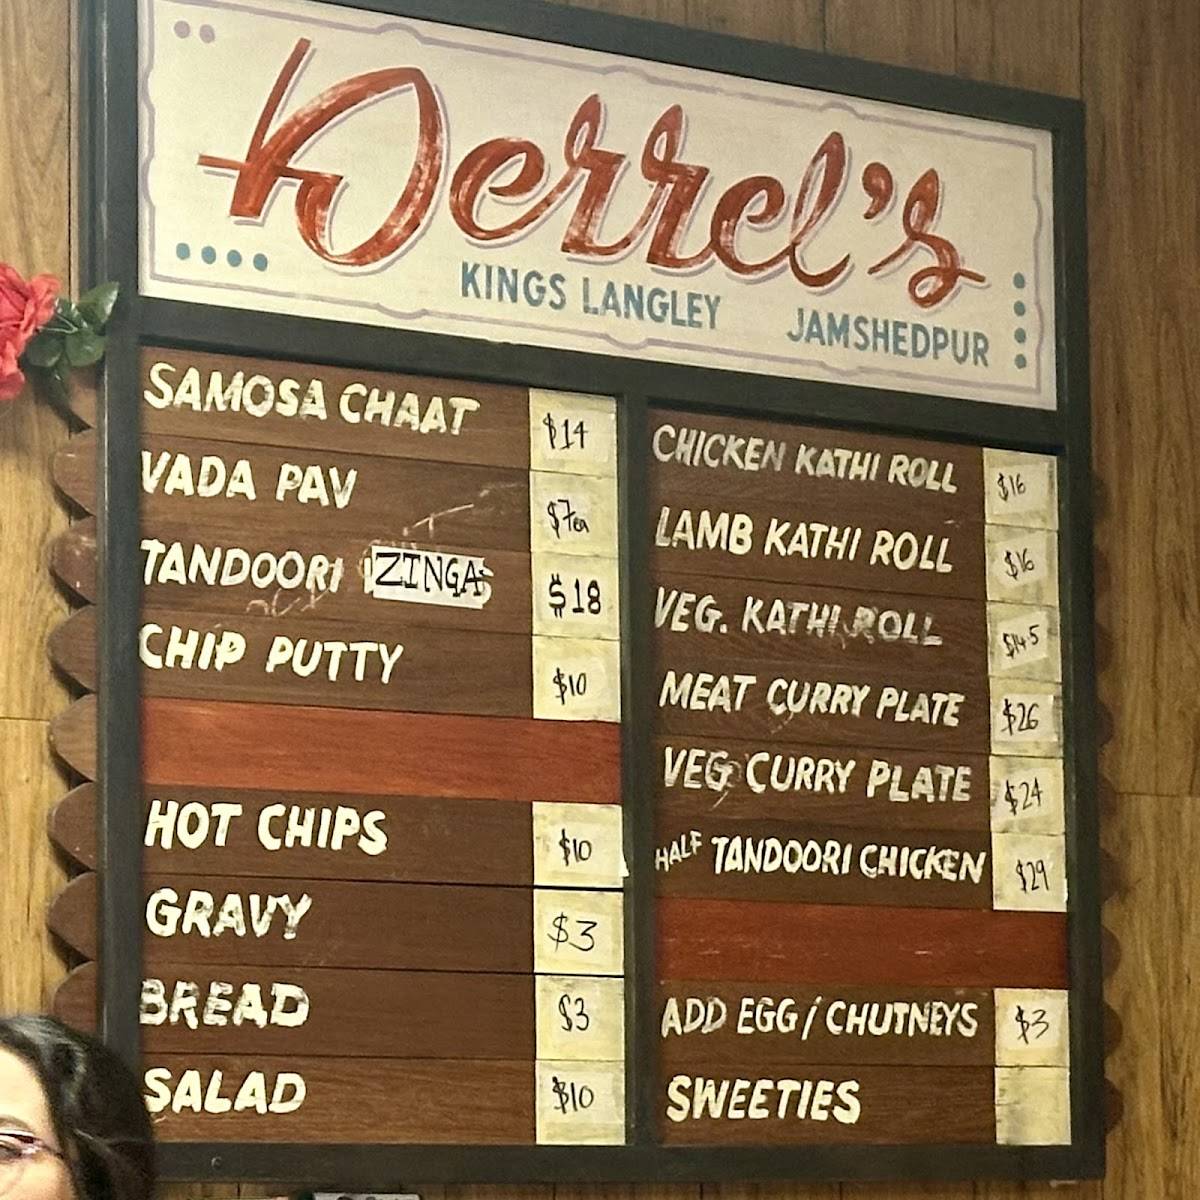 Derrel's
KINGS LANGLEY JAMSHEDPUR
SAMOSA CHAAT $14
VADA PAV $7ea
TANDOORI ZINGA $18
CHIP PUTTY $10
HOT CHIPS $10
GRAVY $3
BREAD $3
SALAD $10
CHICKEN KATHI ROLL $16
LAMB KATHI ROLL $16
VEG. KATHI ROLL $14.5
MEAT CURRY PLATE $26
VEG CURRY PLATE $24
HALF TANDOORI CHICKEN $29
ADD EGG / CHUTNEYS $3
SWEETIES